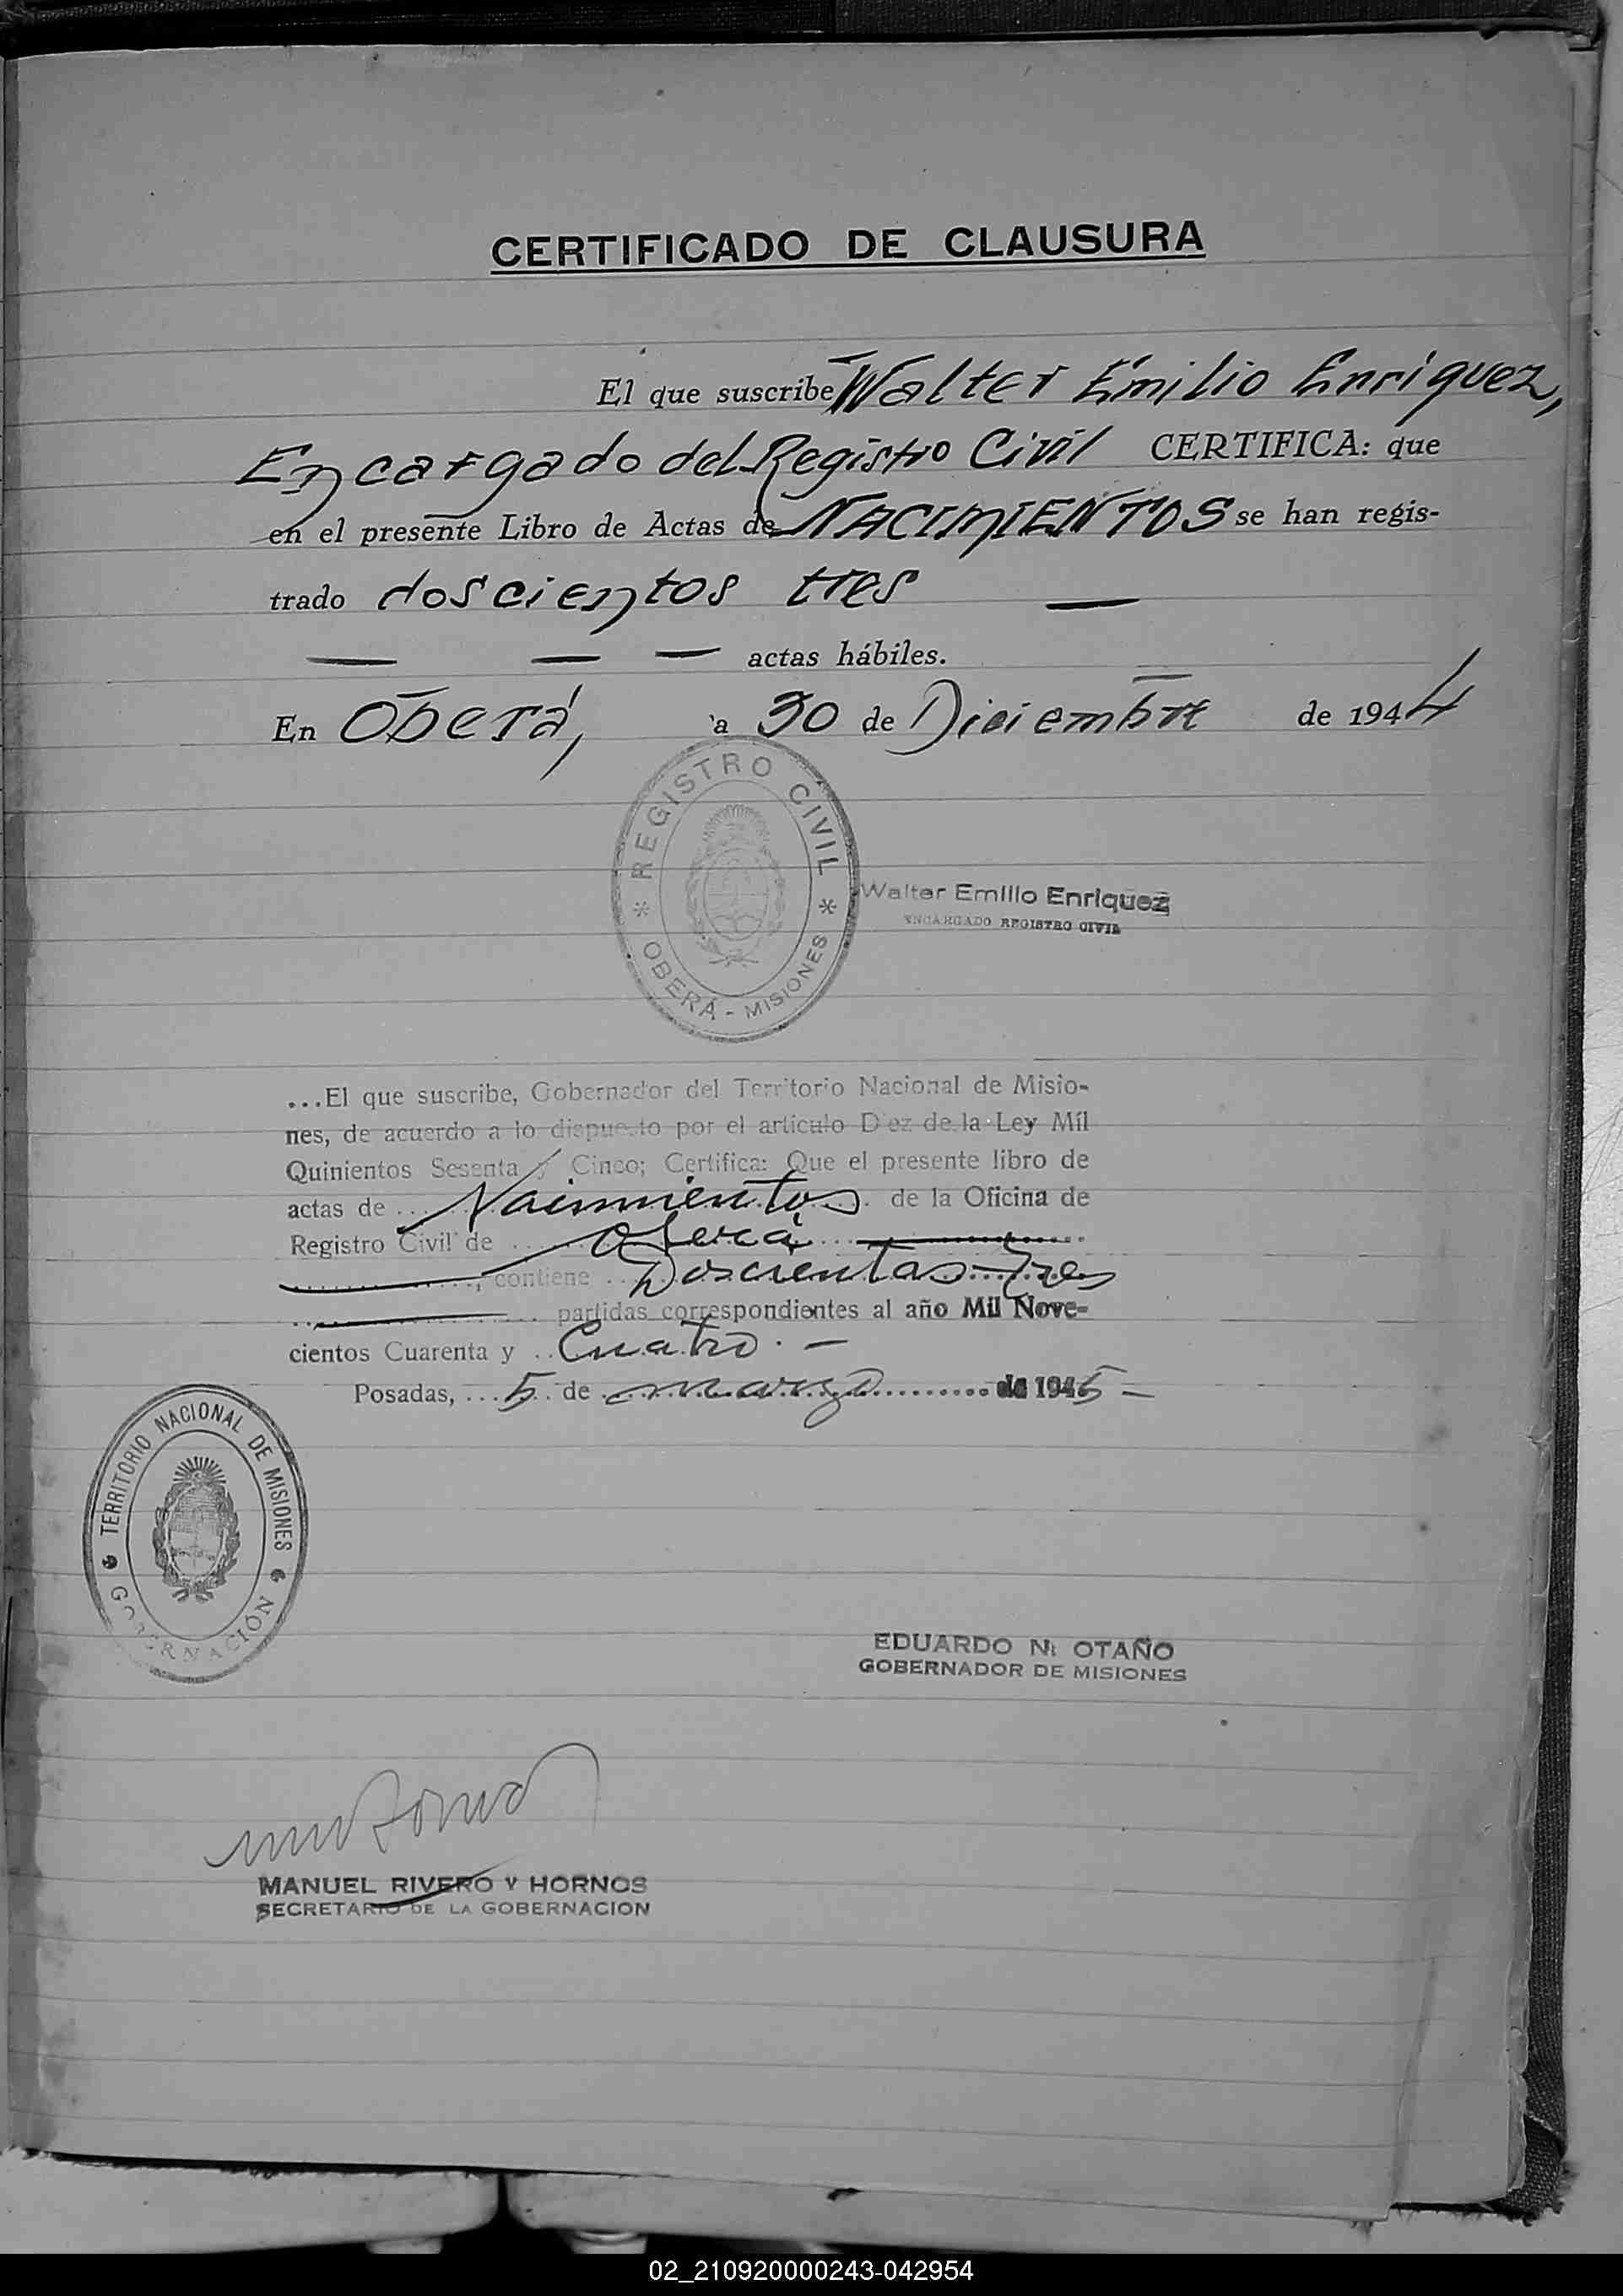 CERTIFICADO DE CLAUSURA
El que suscribe Walter Emilio Enriquez,
Encargado del Registro Civil CERTIFICA: que
en el presente Libro de Actas de NACIMIENTOS se han regis-
trado doscientos tres —
— — — actas hábiles.
En Oberá, a 30 de Diciembre de 1944
REGISTRO CIVIL
* OBERÁ - MISIONES *
Walter Emilio Enriquez
ENCARGADO REGISTRO CIVIL
...El que suscribe, Gobernador del Territorio Nacional de Misio-
nes, de acuerdo a lo dispuesto por el artículo Diez de la Ley Mil
Quinientos Sesenta y Cinco; Certifica: Que el presente libro de
actas de ... Nacimientos. de la Oficina de
Registro Civil de ... Oberá ...
..., contiene ... Doscientas Tres
... partidas correspondientes al año Mil Nove-
cientos Cuarenta y .. Cuatro. —
Posadas, ... 5 .. de ... marzo ... de 1945 —
TERRITORIO NACIONAL DE MISIONES
GOBERNACIÓN
EDUARDO N. OTAÑO
GOBERNADOR DE MISIONES
MANUEL RIVERO Y HORNOS
SECRETARIO DE LA GOBERNACION
02_210920000243-042954